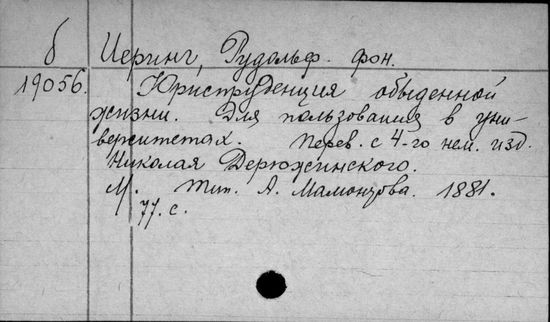 б Иеринг, Рудольф фон.
19056. Юриспруденция обыденной
жизни. Для пользования в уни-
верситетах. Перев. с 4-го нем. изд.
Николая Дерюжинского.
М. Тип. А. Мамонтова. 1881.
77. с.